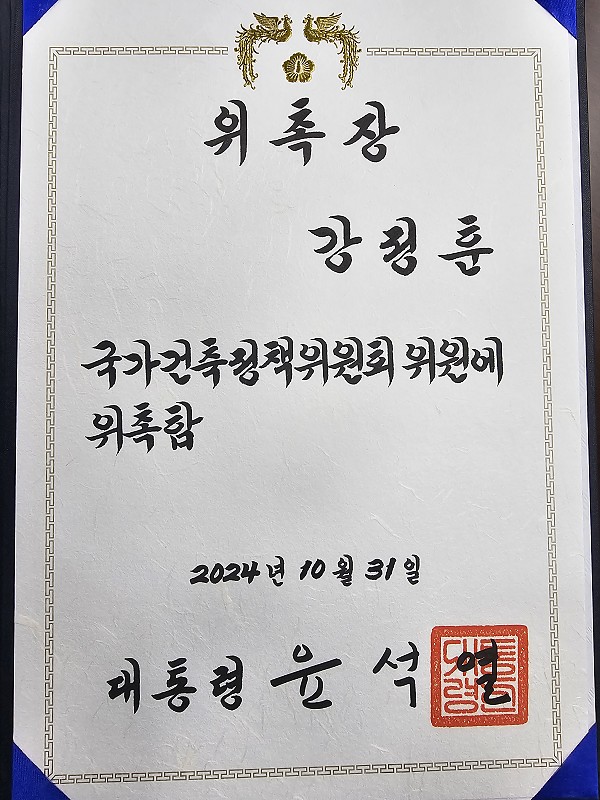 위촉장
강정훈
국가건축정책위원회 위원에
위촉함
2024년 10월 31일
대통령 윤석열